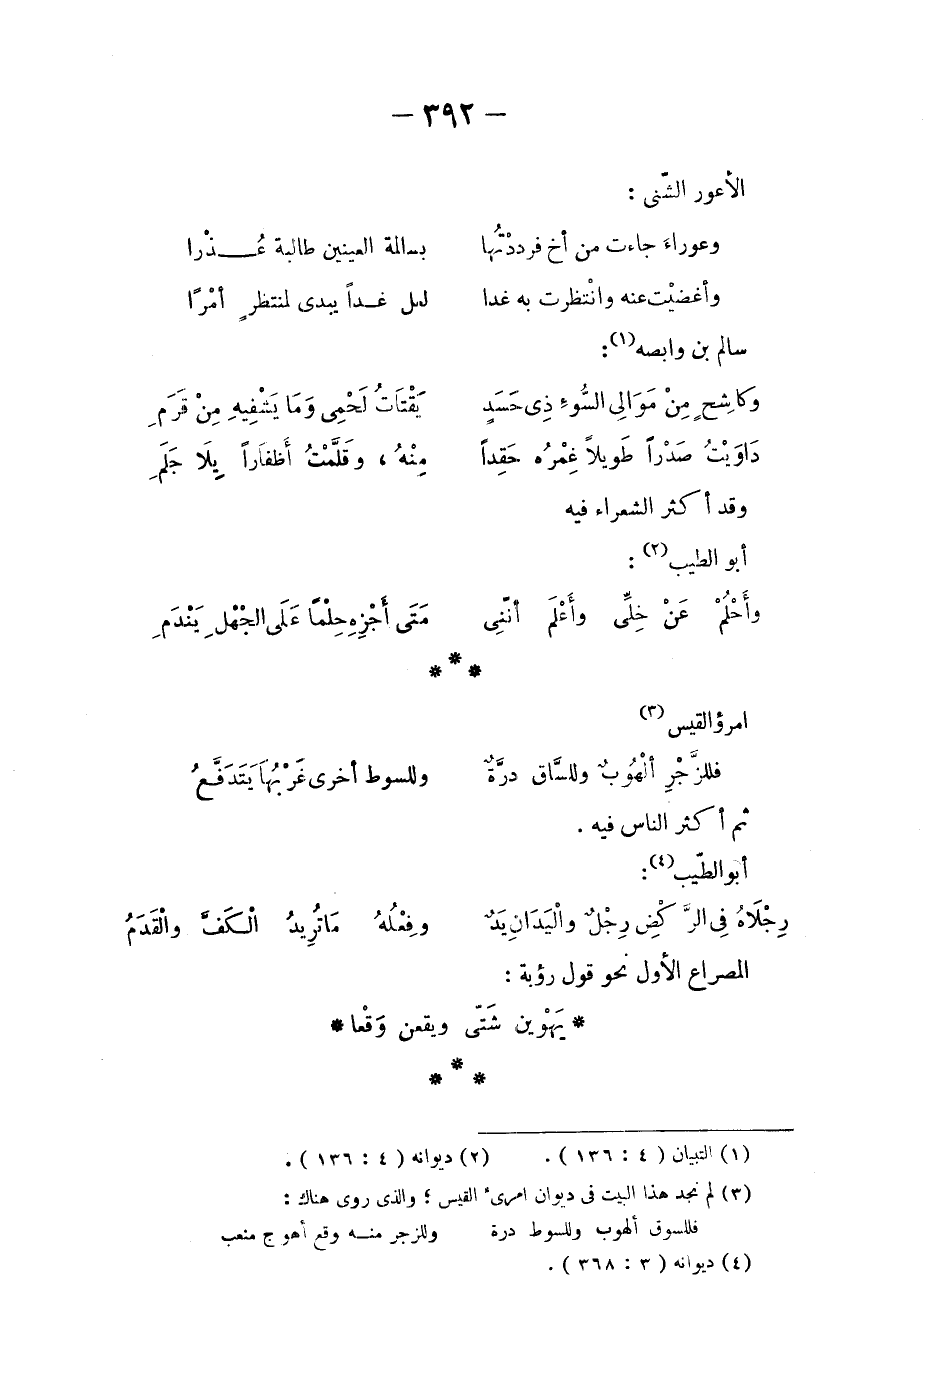 — ٣٩٢ —
الأعور الشّنى :
وعوراءَ جاءت من أخ فرددْتُها بسالمة العينين طالبة عُـــذْرا
وأغضيْت عنه وانْتظرت به غدا لعل غـداً يبدى لمنتظرٍ أمْرًا
سالم بن وابصه(١):
وكاشِحٍ مِنْ مَوَالِى السُّوءِ ذِى حَسَدٍ يَقْتَاتُ لَحْمِى وَمَا يَشْفِيهِ مِنْ قَرَمِ
دَاوَيْتُ صَدْراً طَوِيلاً غِمْرُه حَقِداً مِنْهُ ، وقَلَّمْتُ أَظفَاراً بِلَا جَلَمِ
وقد أكثر الشعراء فيه
أبو الطيب(٢) :
وأَحْلُمُ عَنْ خِلِّى وأَعْلَم أنّنِى مَتَى أَجْزِهِ حِلْمًا عَلَى الجْهْلِ يَنْدَمِ
* * *
امرؤ القيس(٣)
فللزَّجْرِ أُلْهُوبٌ وللسَّاق درَّةٌ وللسوط أخرى غَرْبُهَا يَتَدَفَّعُ
ثم أكثر الناس فيه .
أبو الطّيب(٤):
رِجْلَاهُ فِى الرَّكْضِ رِجْلٌ والْيَدَانِ يَدٌ وفِعْلُهُ مَا تُرِيدُ الْكَفُّ والْقَدَمُ
المصراع الأول نحو قول رؤبة :
* يَهْوِين شَتَّى ويقعن وَقْعا *
* * *
(١) التبيان ( ٤ : ١٣٦ ) . (٢) ديوانه ( ٤ : ١٣٦ ) .
(٣) لم نجد هذا البيت فى ديوان امرىء القيس ؛ والذى روى هناك :
فللسوق ألهوب وللسوط درة وللزجر منـه وقع أهوج منعب
(٤) ديوانه ( ٣ : ٣٦٨ ) .